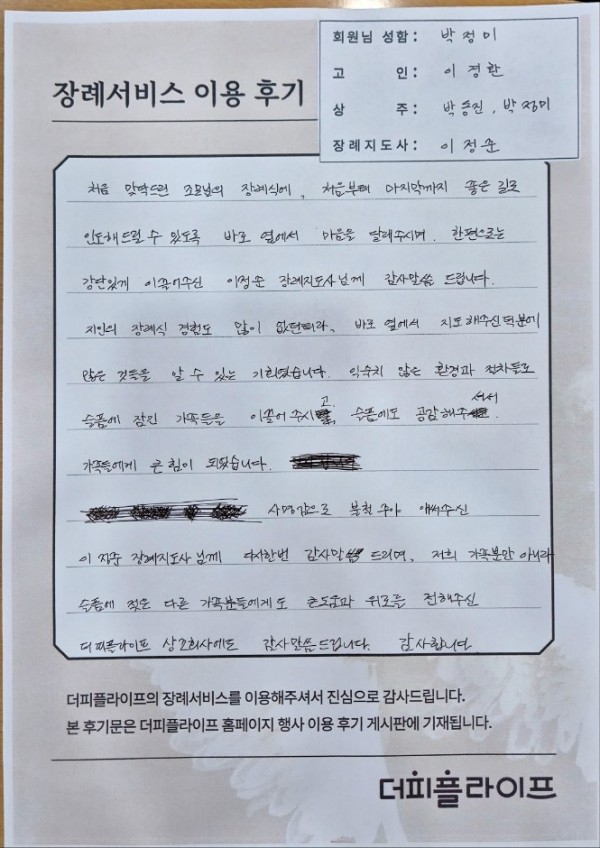 장례서비스 이용 후기
회원님 성함 : 박정미
고 인 : 이경환
상 주 : 박승진, 박정미
장례지도사 : 이정순
처음 맞닥드린 조모님의 장례식에, 처음부터 마지막까지 좋은 길로
인도해드릴 수 있도록 바로 옆에서 마음을 달래주시며, 한편으로는
강단있게 이끌어주신 이정순 장례지도사님께 감사말씀 드립니다.
지인의 장례식 경험도 많이 없던터라, 바로 옆에서 지도해주신덕분에
많은 것들을 알 수 있는 기회였습니다. 익숙치 않은 환경과 절차들로
슬픔에 잠긴 가족들을 이끌어 주시고, 슬픔에도 공감해주셔서
가족들에게 큰 힘이 되었습니다.
사명감으로 불철주야 애써주신
이정순 장례지도사님께 다시한번 감사말씀 드리며, 저희 가족뿐만 아니라
슬픔에 젖은 다른 가족분들에게도 큰도움과 위로를 전해주신
더피플라이프 상조회사에도 감사말씀드립니다. 감사합니다.
더피플라이프의 장례서비스를 이용해주셔서 진심으로 감사드립니다.
본 후기문은 더피플라이프 홈페이지 행사 이용 후기 게시판에 기재됩니다.
더피플라이프